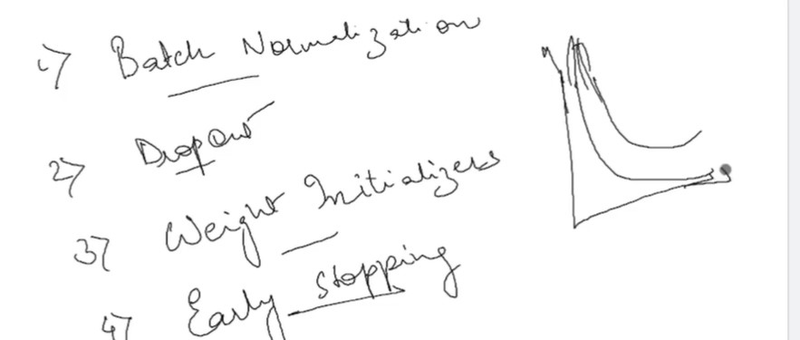 1) Batch Normalization
2) Dropout
3) Weight Initializers
4) Early Stopping